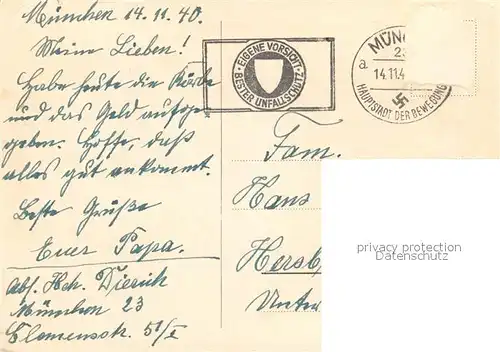 München 14.11.40.
Meine Lieben!
Habe heute die Körbe
und das Geld aufge-
geben. Hoffe, daß
alles gut ankommt.
Beste Grüße
Euer Papa.
Abs. Hch. Dierich
München 23
Clemensstr. 51/I
EIGENE VORSICHT
BESTER UNFALLSCHUTZ
MÜN
a
14.11.4
HAUPTSTADT DER BEWEGUNG
Fam.
Hans
Hersb
Unter
privacy protection
Datenschutz